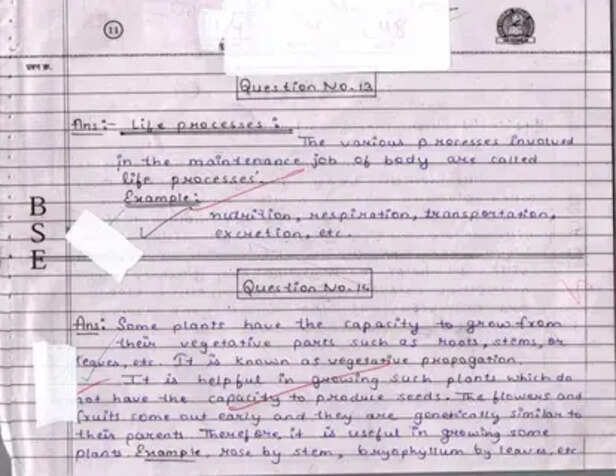 11
प्रश्न क्र.
Question No. 13
Ans:- Life processes:
The various processes involved
in the maintenance job of body are called
life processes.
Example:
nutrition, respiration, transportation,
excretion, etc.
B
S
E
Question No. 14
Ans: Some plants have the capacity to grow from
their vegetative parts such as roots, stems, or
leaves, etc. It is known as vegetative propagation.
It is helpful in growing such plants which do
not have the capacity to produce seeds. The flowers and
fruits come out early and they are genetically similar to
their parents. Therefore, it is useful in growing some
plants. Example, rose by stem, bryophyllum by leaves, etc